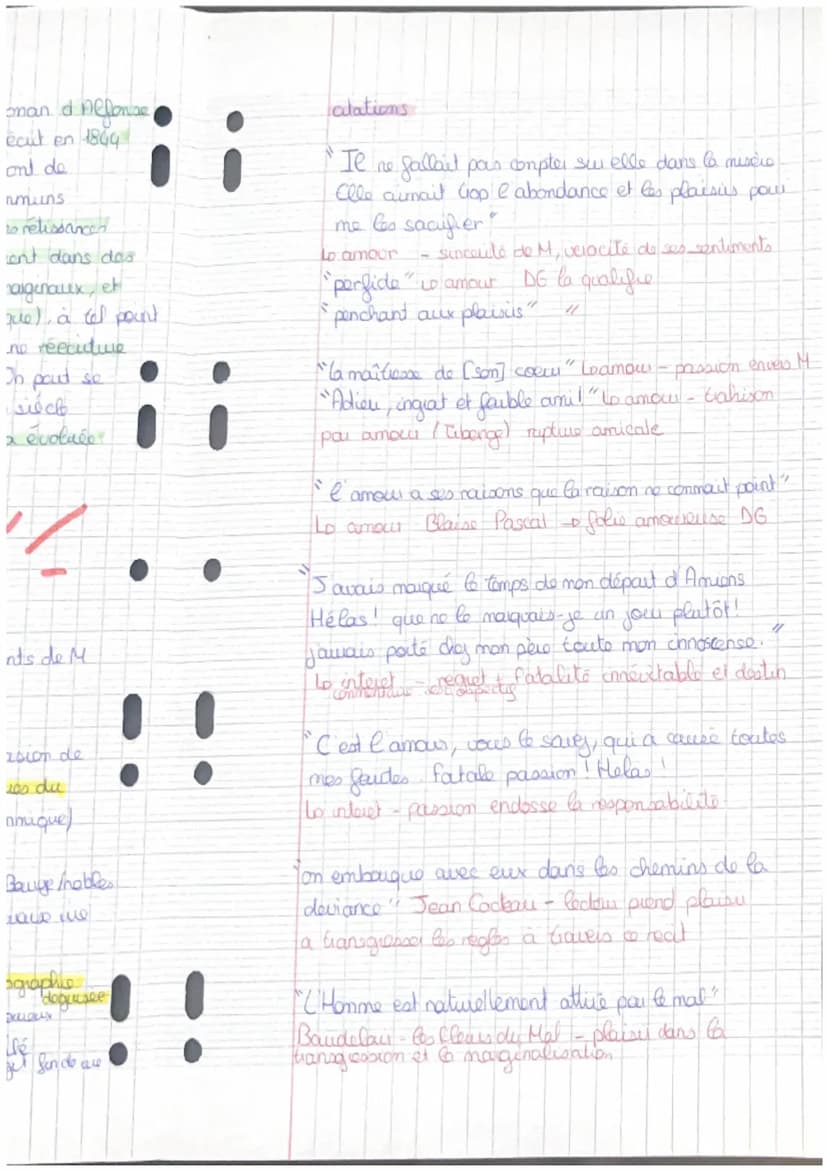 oman d Alfonse
écrit en 1844
ont de
mmuns
réussances
ient dans des
arginaux, et
que), à tel point
ne réécriture
On peut se
siècle
a évoluée
nts de M
ession de
ues du
nnique)
Bourge/nobles
ographie
deguisee
fin de au
citations
"Il ne fallait pas compter sur elle dans la misère
Elle aimait trop l'abondance et les plaisirs pour
me les sacrifier"
↳ amour - sincerité de M, veracité de ses sentiments
"perfide" ↳ amour DG la qualifie
"penchant aux plaisirs" "
"la maîtresse de [son] coeur" ↳ amour - passion envers M
"Adieu, ingrat et faible ami!" ↳ amour - trahison
par amour (Tiberge) rupture amicale
"l'amour a ses raisons que la raison ne connait point"
↳ amour Blaise Pascal → folie amoureuse DG
"J'avais marqué le temps de mon départ d'Amiens
Hélas! que ne le marquais-je un jour plutôt!
j'aurais porté chez mon père toute mon innoscense."
↳ interet - regret + fatalité innévitable et destin
"C'est l'amour, vous le savez, qui a causé toutes
mes fautes. Fatale passion! Helas!
↳ interet - passion endosse la responsabilité
"on embarque avec eux dans les chemins de la
deviance" Jean Cocteau - lecteur prend plaisir
a transgresser les regles à travers ce recit
"L'Homme est naturellement attiré par le mal"
Baudelaire - les fleurs du Mal - plaisir dans la
transgression et la marginalisation